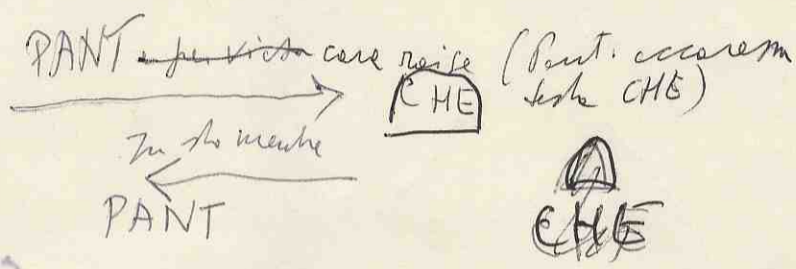 PANT care raise (Pant. accarezza
testa CHE)
CHE
In sto mentre
PANT
CHE